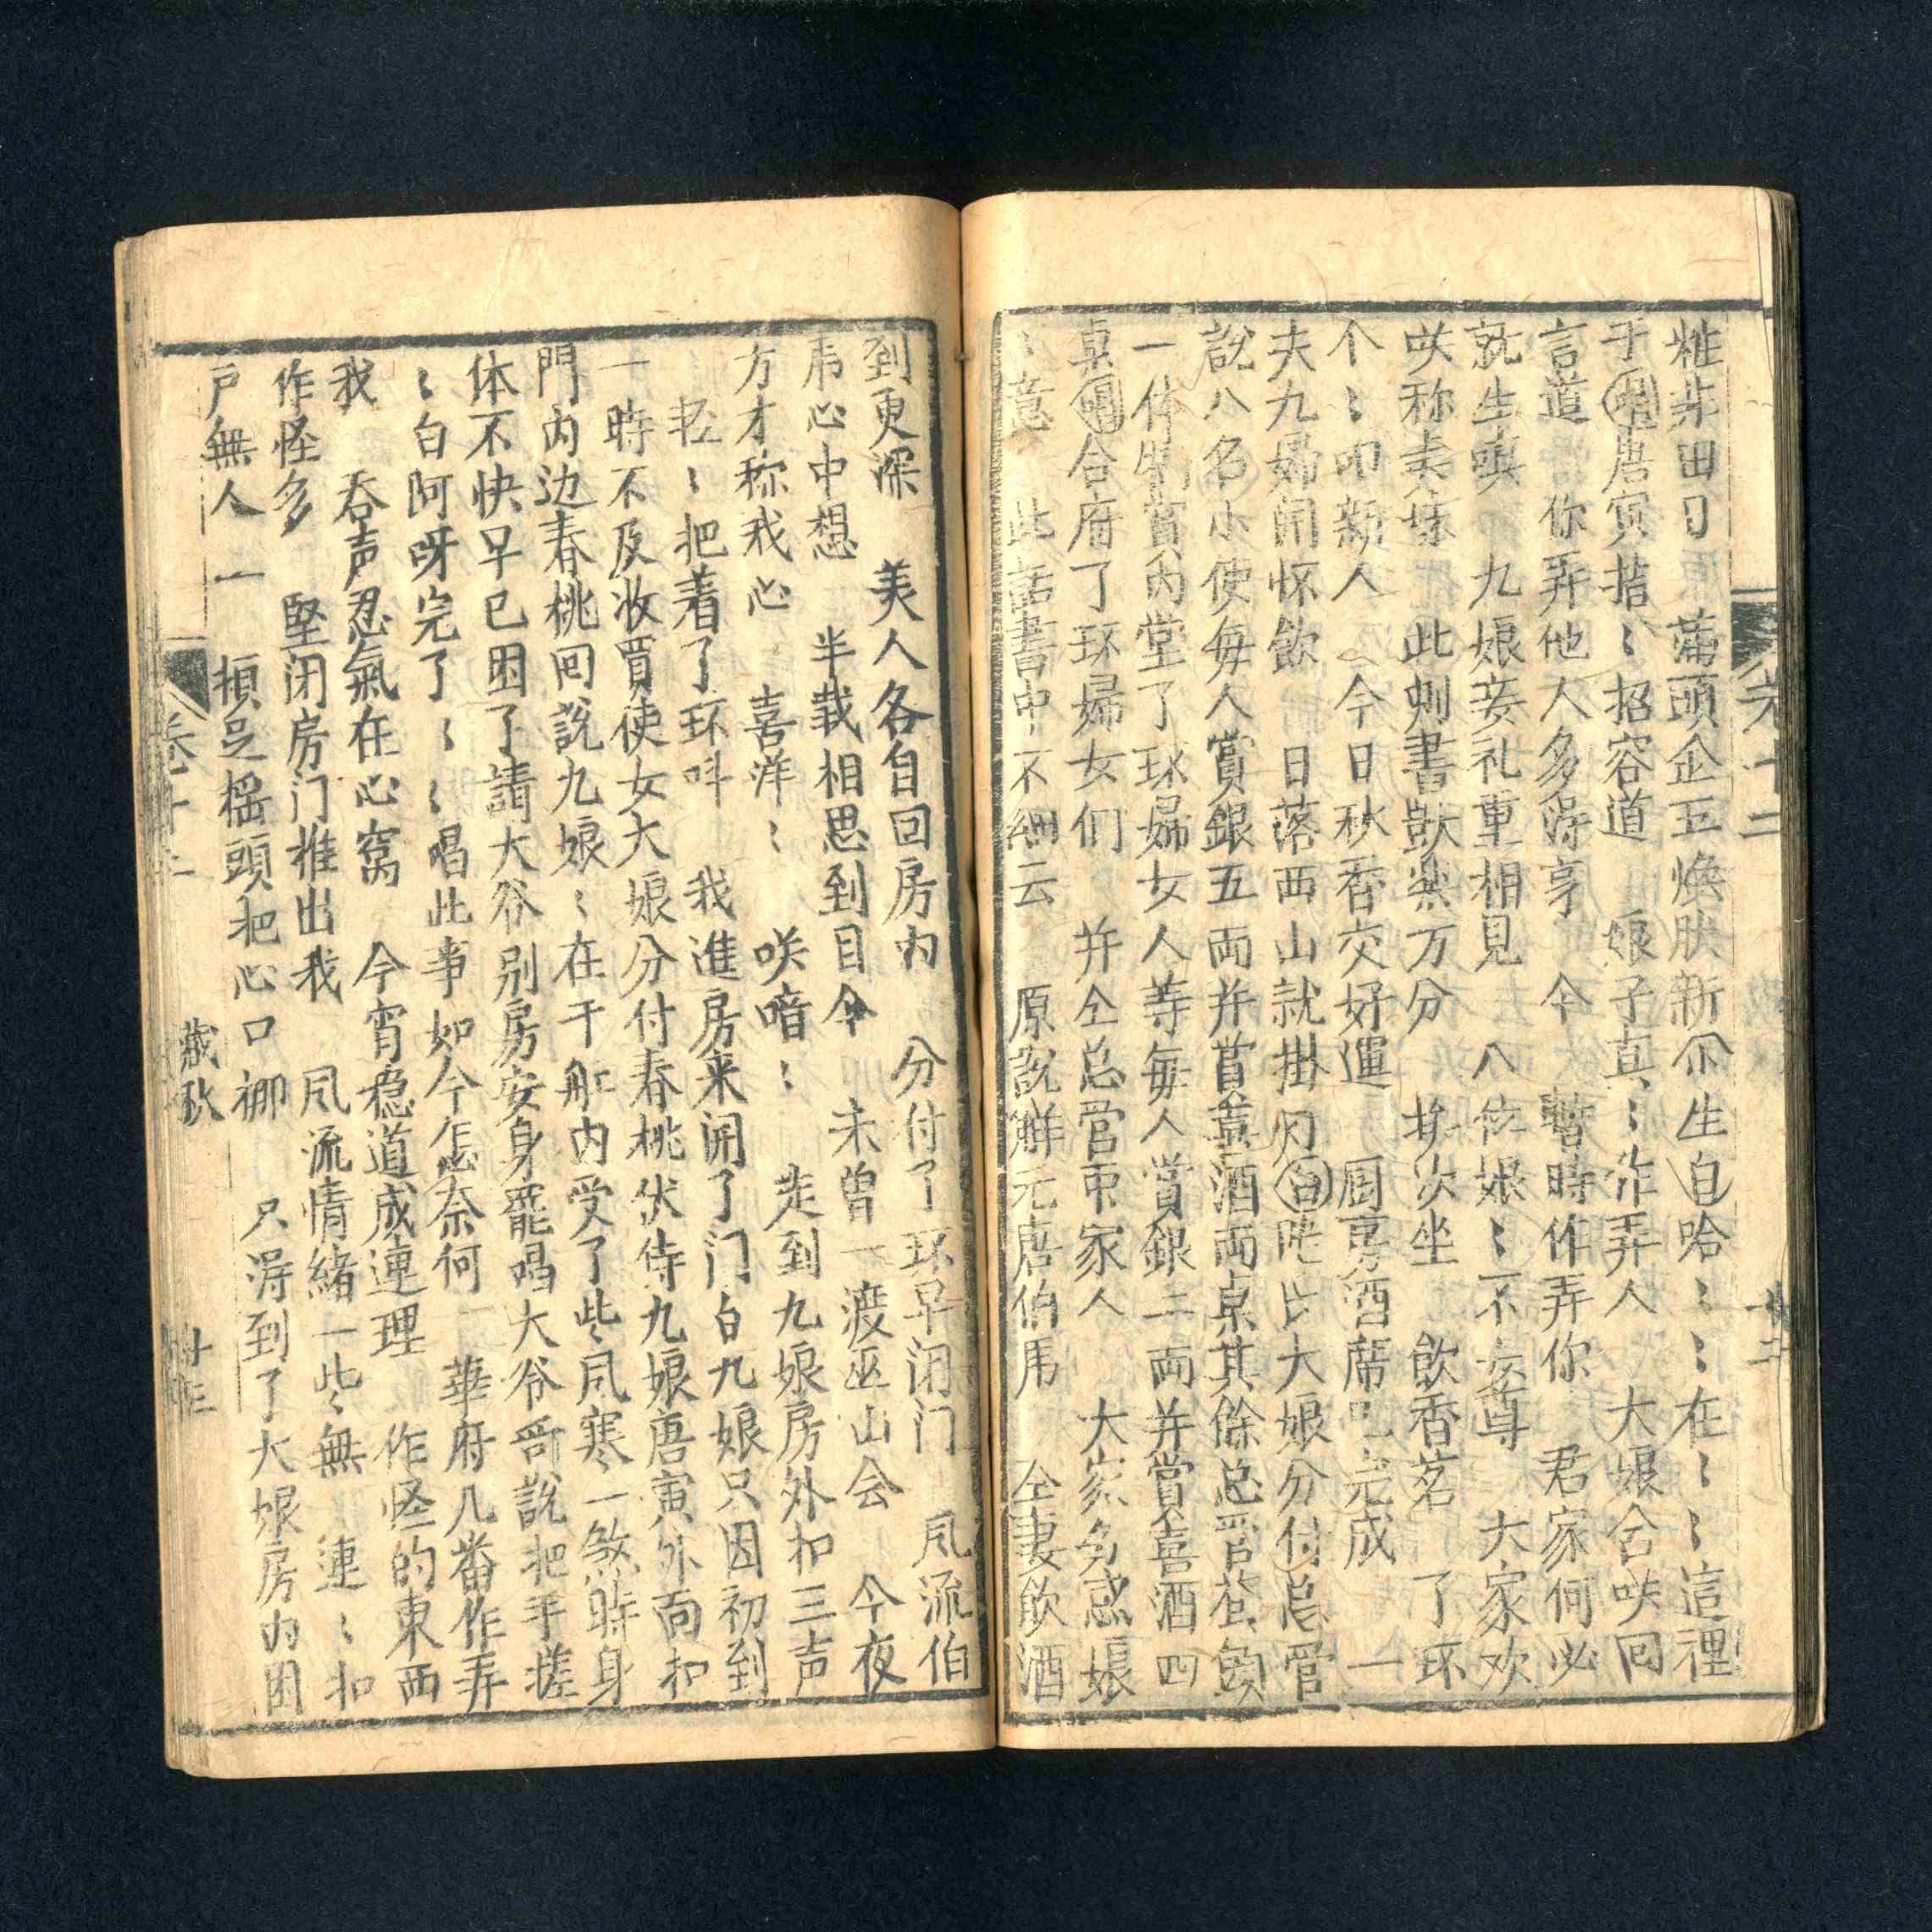 蒲頭企五煥肤新 生自哈〻〻在〻〻這裡
于唱唐寅揩〻招容道 娘子真〻作弄人 大娘含咲回
言道 你弄他人多淂享 今 暫時作弄你 君家何必
就生嗔 九娘妾礼重相見 八位娘〻不 尊 大家欢
咲称 妹 此刻書獃樂万分 挨次坐 飲香茗 了环
个〻叩新人 今日秋香交好運 厨房酒席 完成 一
夫九婦開怀飲 日落西山就掛灯白 大娘分付总管
説八名小使每人賞銀五両并賞喜酒両桌其餘总管
一体 賞内堂了环婦女人等每人賞銀二両并賞喜酒四
桌唱合府了环婦女们 并仝总管 家人 大家 娘
〻意 此話書中不細云 原説觧元唐伯虎 仝妻飲酒
卷十二
到更深 美人各自回房内 分付了环早闭门 凤流伯
虎心中想 半载相思到目今 未曾一渡巫山会 今夜
方才称我心 喜洋〻 咲喑〻 走到九娘房外扣三声
轻〻把着了环呌 我進房来開了门白九娘只因初到
一時不及妆買使女大娘分付春桃伏侍九娘唐寅外面扣
門内边春桃回說九娘〻在于船内受了些凤寒一煞時身
体不快早已困了請大爷别房安身罷唱大爷 說把手搓
〻白阿呀完了〻〻唱此事如今怎奈何 華府几番作弄
我 吞声忍氣在心窝 今宵稳道成連理 作怪的東西
作怪多 堅闭房门推出我 凤流情緒一些無 連〻扣
戸無人一 頓足摇頭把心口 只淂到了大娘房内困
卷十二 藏 十三